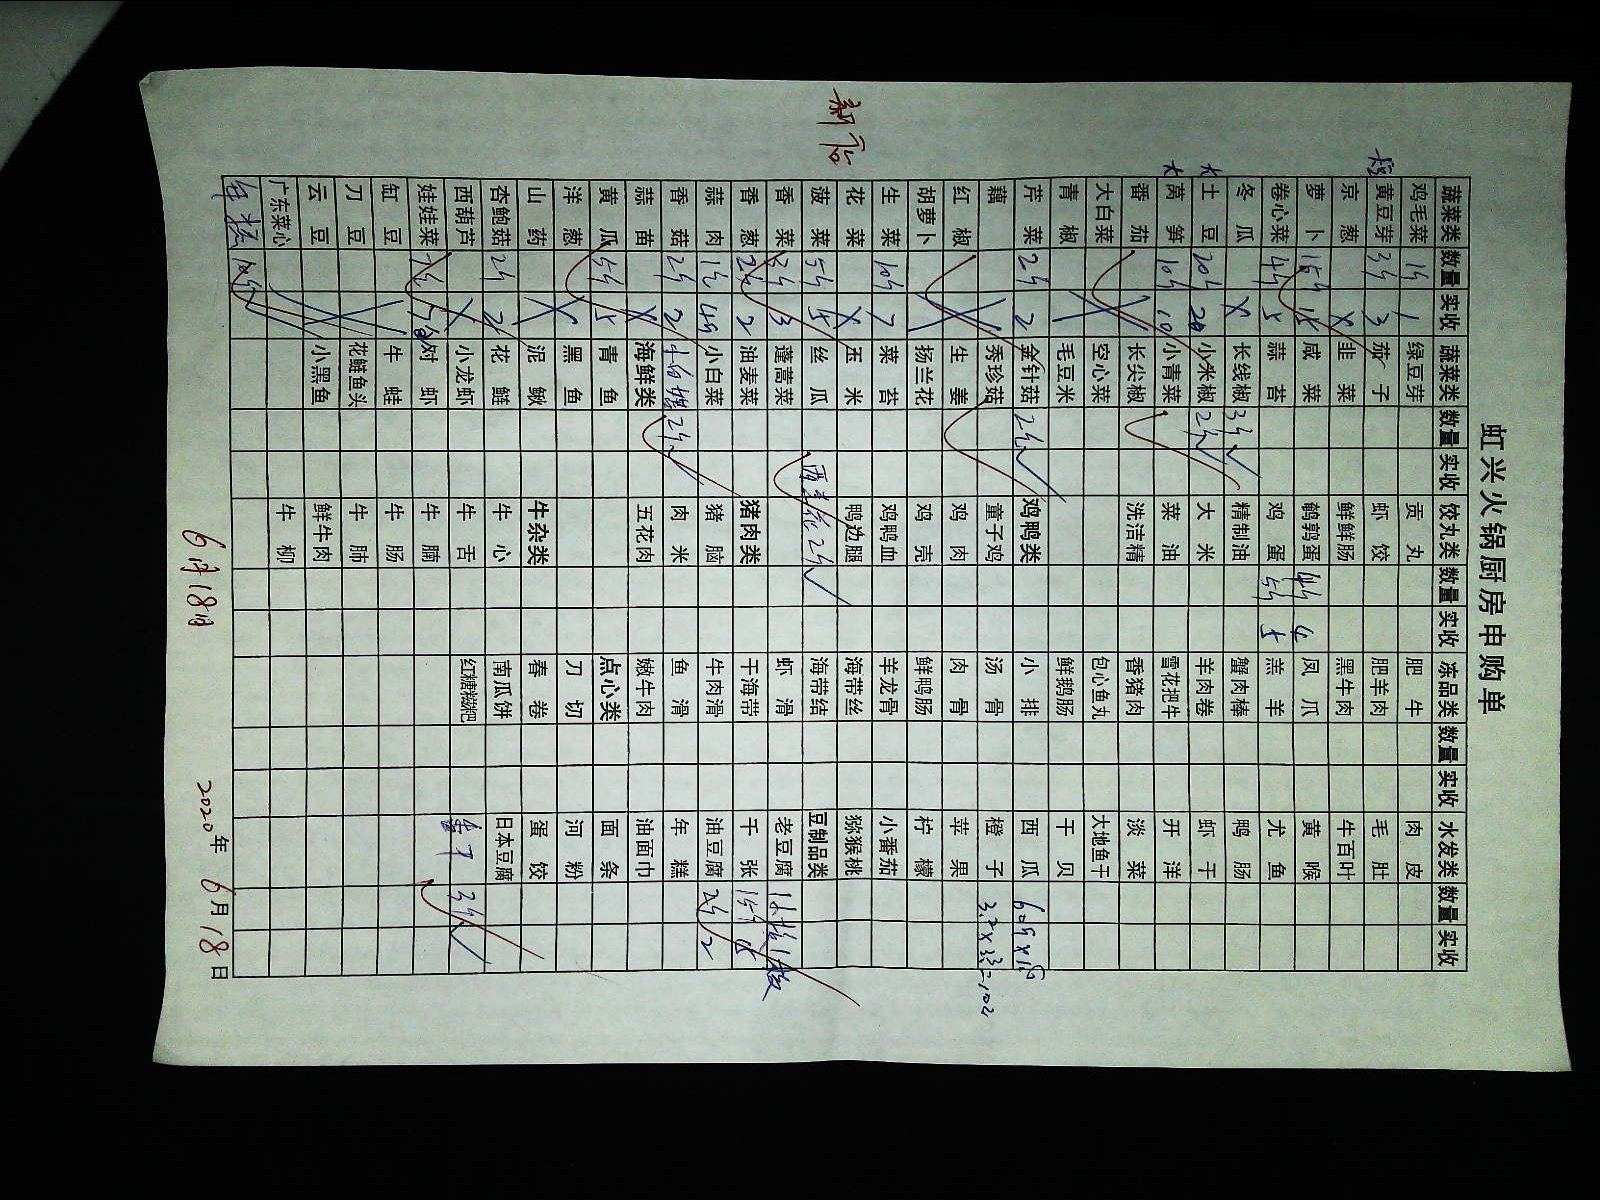 虹兴火锅厨房申购单
新店
蔬菜类 数量 实收 蔬菜类 数量 实收 饺丸类 数量 实收 冻品类 数量 实收 水发类 数量 实收
鸡毛菜 1斤 1 绿豆芽 贡丸 肥牛 肉皮
黄豆芽 3斤 3 茄子 虾饺 肥羊肉 毛肚
京葱 X 韭菜 鲜鲜肠 黑牛肉 牛百叶
萝卜 15斤 15 咸菜 鹌鹑蛋 4斤 4 凤爪 黄喉
卷心菜 4斤 5 蒜苔 鸡蛋 5斤 5 羔羊 尤鱼
冬瓜 X 长线椒 3斤 精制油 蟹肉棒 鸭肠
大 土豆 20斤 20 小米椒 2斤 大米 羊肉卷 虾干
大 莴笋 10斤 10 小青菜 菜油 雪花把牛 开洋
番茄 长尖椒 洗洁精 香猪肉 淡菜
大白菜 空心菜 包心鱼丸 大地鱼干
青椒 毛豆米 鲜鹅肠 干贝
芹菜 2斤 2 金针菇 2包 鸡鸭类 小排 西瓜
藕 秀珍菇 童子鸡 汤骨 橙子
红椒 生姜 鸡肉 肉骨 苹果
胡萝卜 扬兰花 鸡壳 鲜鸭肠 柠檬
生菜 10斤 7 菜苔 鸡鸭血 羊龙骨 小番茄
花菜 X 玉米 鸭边腿 海带丝 猕猴桃
菠菜 5斤 5 丝瓜 海带结 豆制品类
香菜 3斤 3 蓬蒿菜 虾滑 老豆腐
香葱 2斤 2 油麦菜 猪肉类 干海带 千张
蒜肉 小白菜 猪脑 牛肉滑 油豆腐 2斤 2
香菇 2斤 2 肉米 鱼滑 年糕
蒜苗 X 海鲜类 五花肉 嫩牛肉 油面巾
黄瓜 5斤 5 青鱼 点心类 面条
洋葱 X 黑鱼 刀切 河粉
山药 X 泥鳅 牛杂类 春卷 蛋饺
杏鲍菇 2斤 2 花鲢 牛心 南瓜饼 日本豆腐
西葫芦 X 小龙虾 牛舌 红糖糍粑 3斤
娃娃菜 对虾 牛腩
缸豆 牛蛙 牛肠
刀豆 花鲢鱼头 牛肺
云豆 小黑鱼 鲜牛肉
广东菜心 牛柳
6月18日
2020年 6月18日